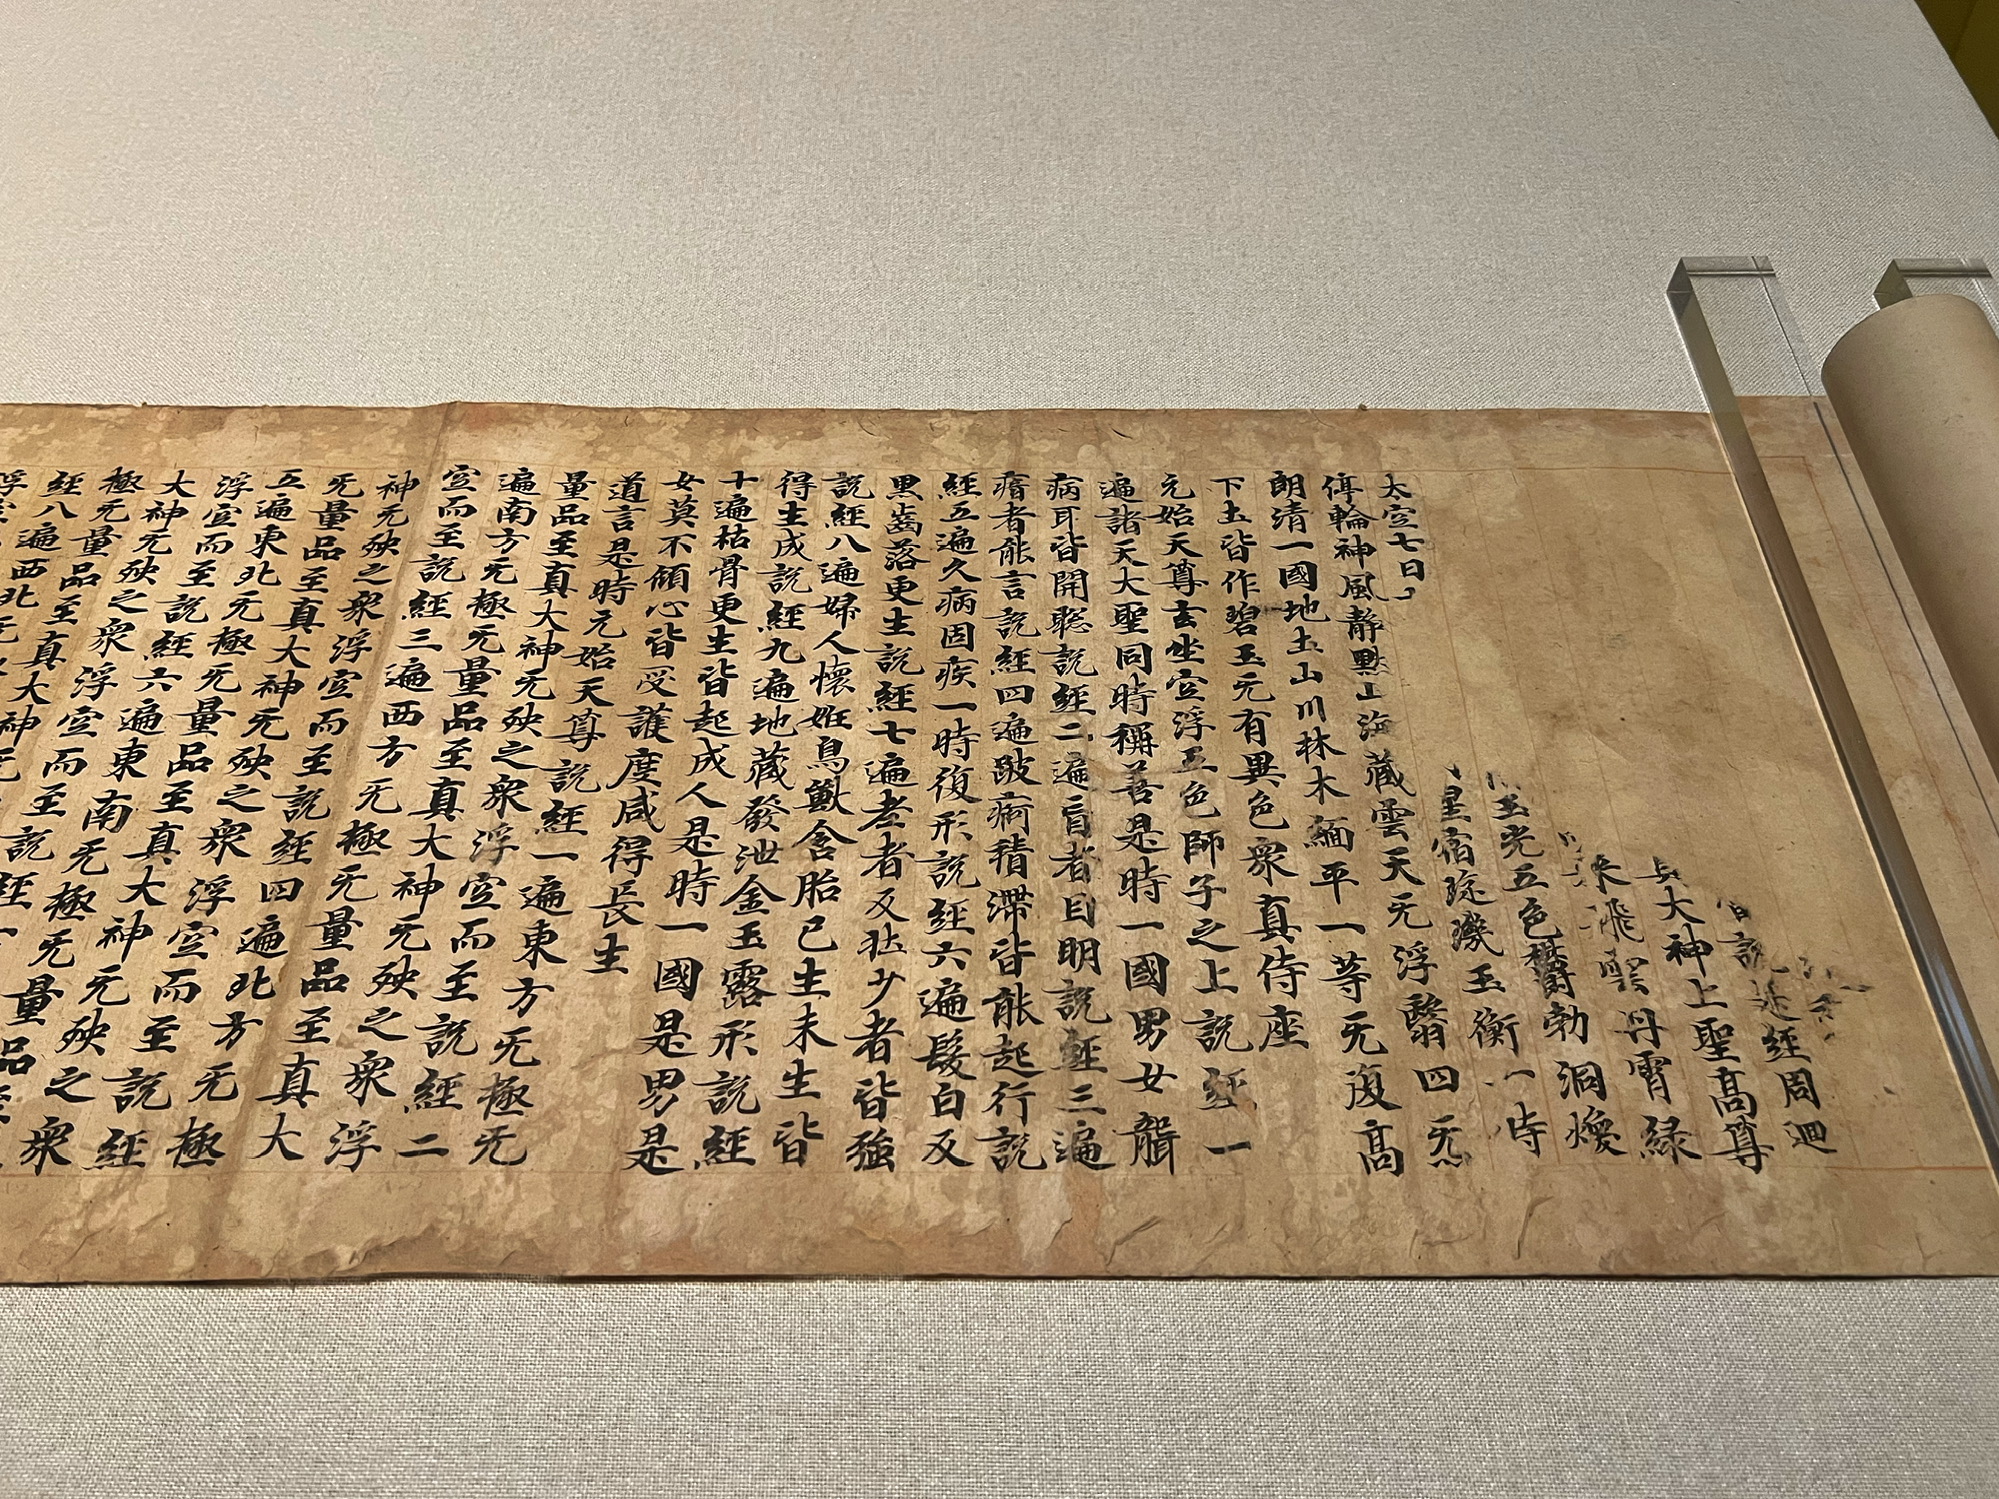 說是經周迴
真大神上聖高尊
来飛雲丹霄緑
玉光五色欝勃洞煥
太空七日星宿琁璣玉衡一時
停輪神風静默山海藏雲天无浮翳四炁
朗清一國地土山川林木緬平一等无復高
下土皆作碧玉无有異色衆真侍座
元始天尊玄坐空浮五色師子之上說經一
遍諸天大聖同時稱善是時一國男女聾
病耳皆開聡說經二遍盲者目明說經三遍
瘖者能言說經四遍跛痾積滯皆能起行說
經五遍久病固疾一時復形說經六遍髮白反
黒齒落更生說經七遍老者反壮少者皆強
說經八遍婦人懷妊鳥獸含胎已生未生皆
得生成說經九遍地藏發泄金玉露形說經
十遍枯骨更生皆起成人是時一國是男是
女莫不傾心皆受護度咸得長生
道言是時元始天尊說經一遍東方无極无
量品至真大神无殃之衆浮空而至說經二
遍南方无極无量品至真大神无殃之衆浮
空而至說經三遍西方无極无量品至真大
神无殃之衆浮空而至說經四遍北方无極
无量品至真大神无殃之衆浮空而至說經
五遍東北无極无量品至真大神无殃之衆
浮空而至說經六遍東南无極无量品至真
大神无殃之衆浮空而至說經
極无量品至真大神
經八遍西北无
浮